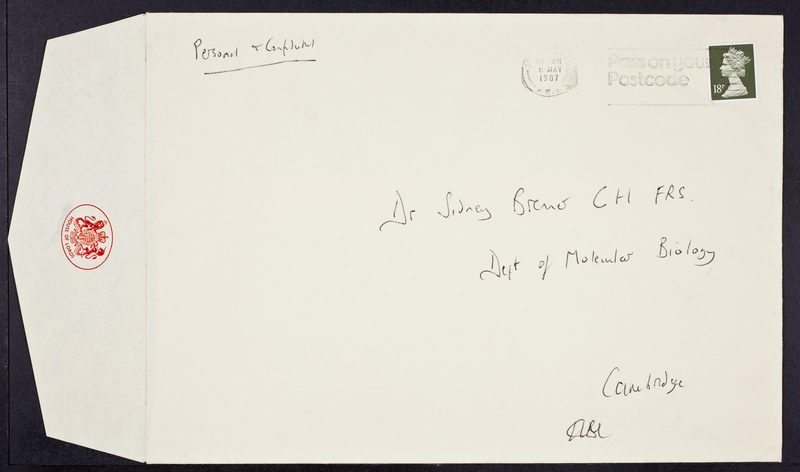 Personal & Confidential
6 MAY
1987
Pass on your
Postcode
18P
HOUSE OF LORDS
Dr Sidney Brenner CH FRS.
Dept of Molecular Biology
Cambridge